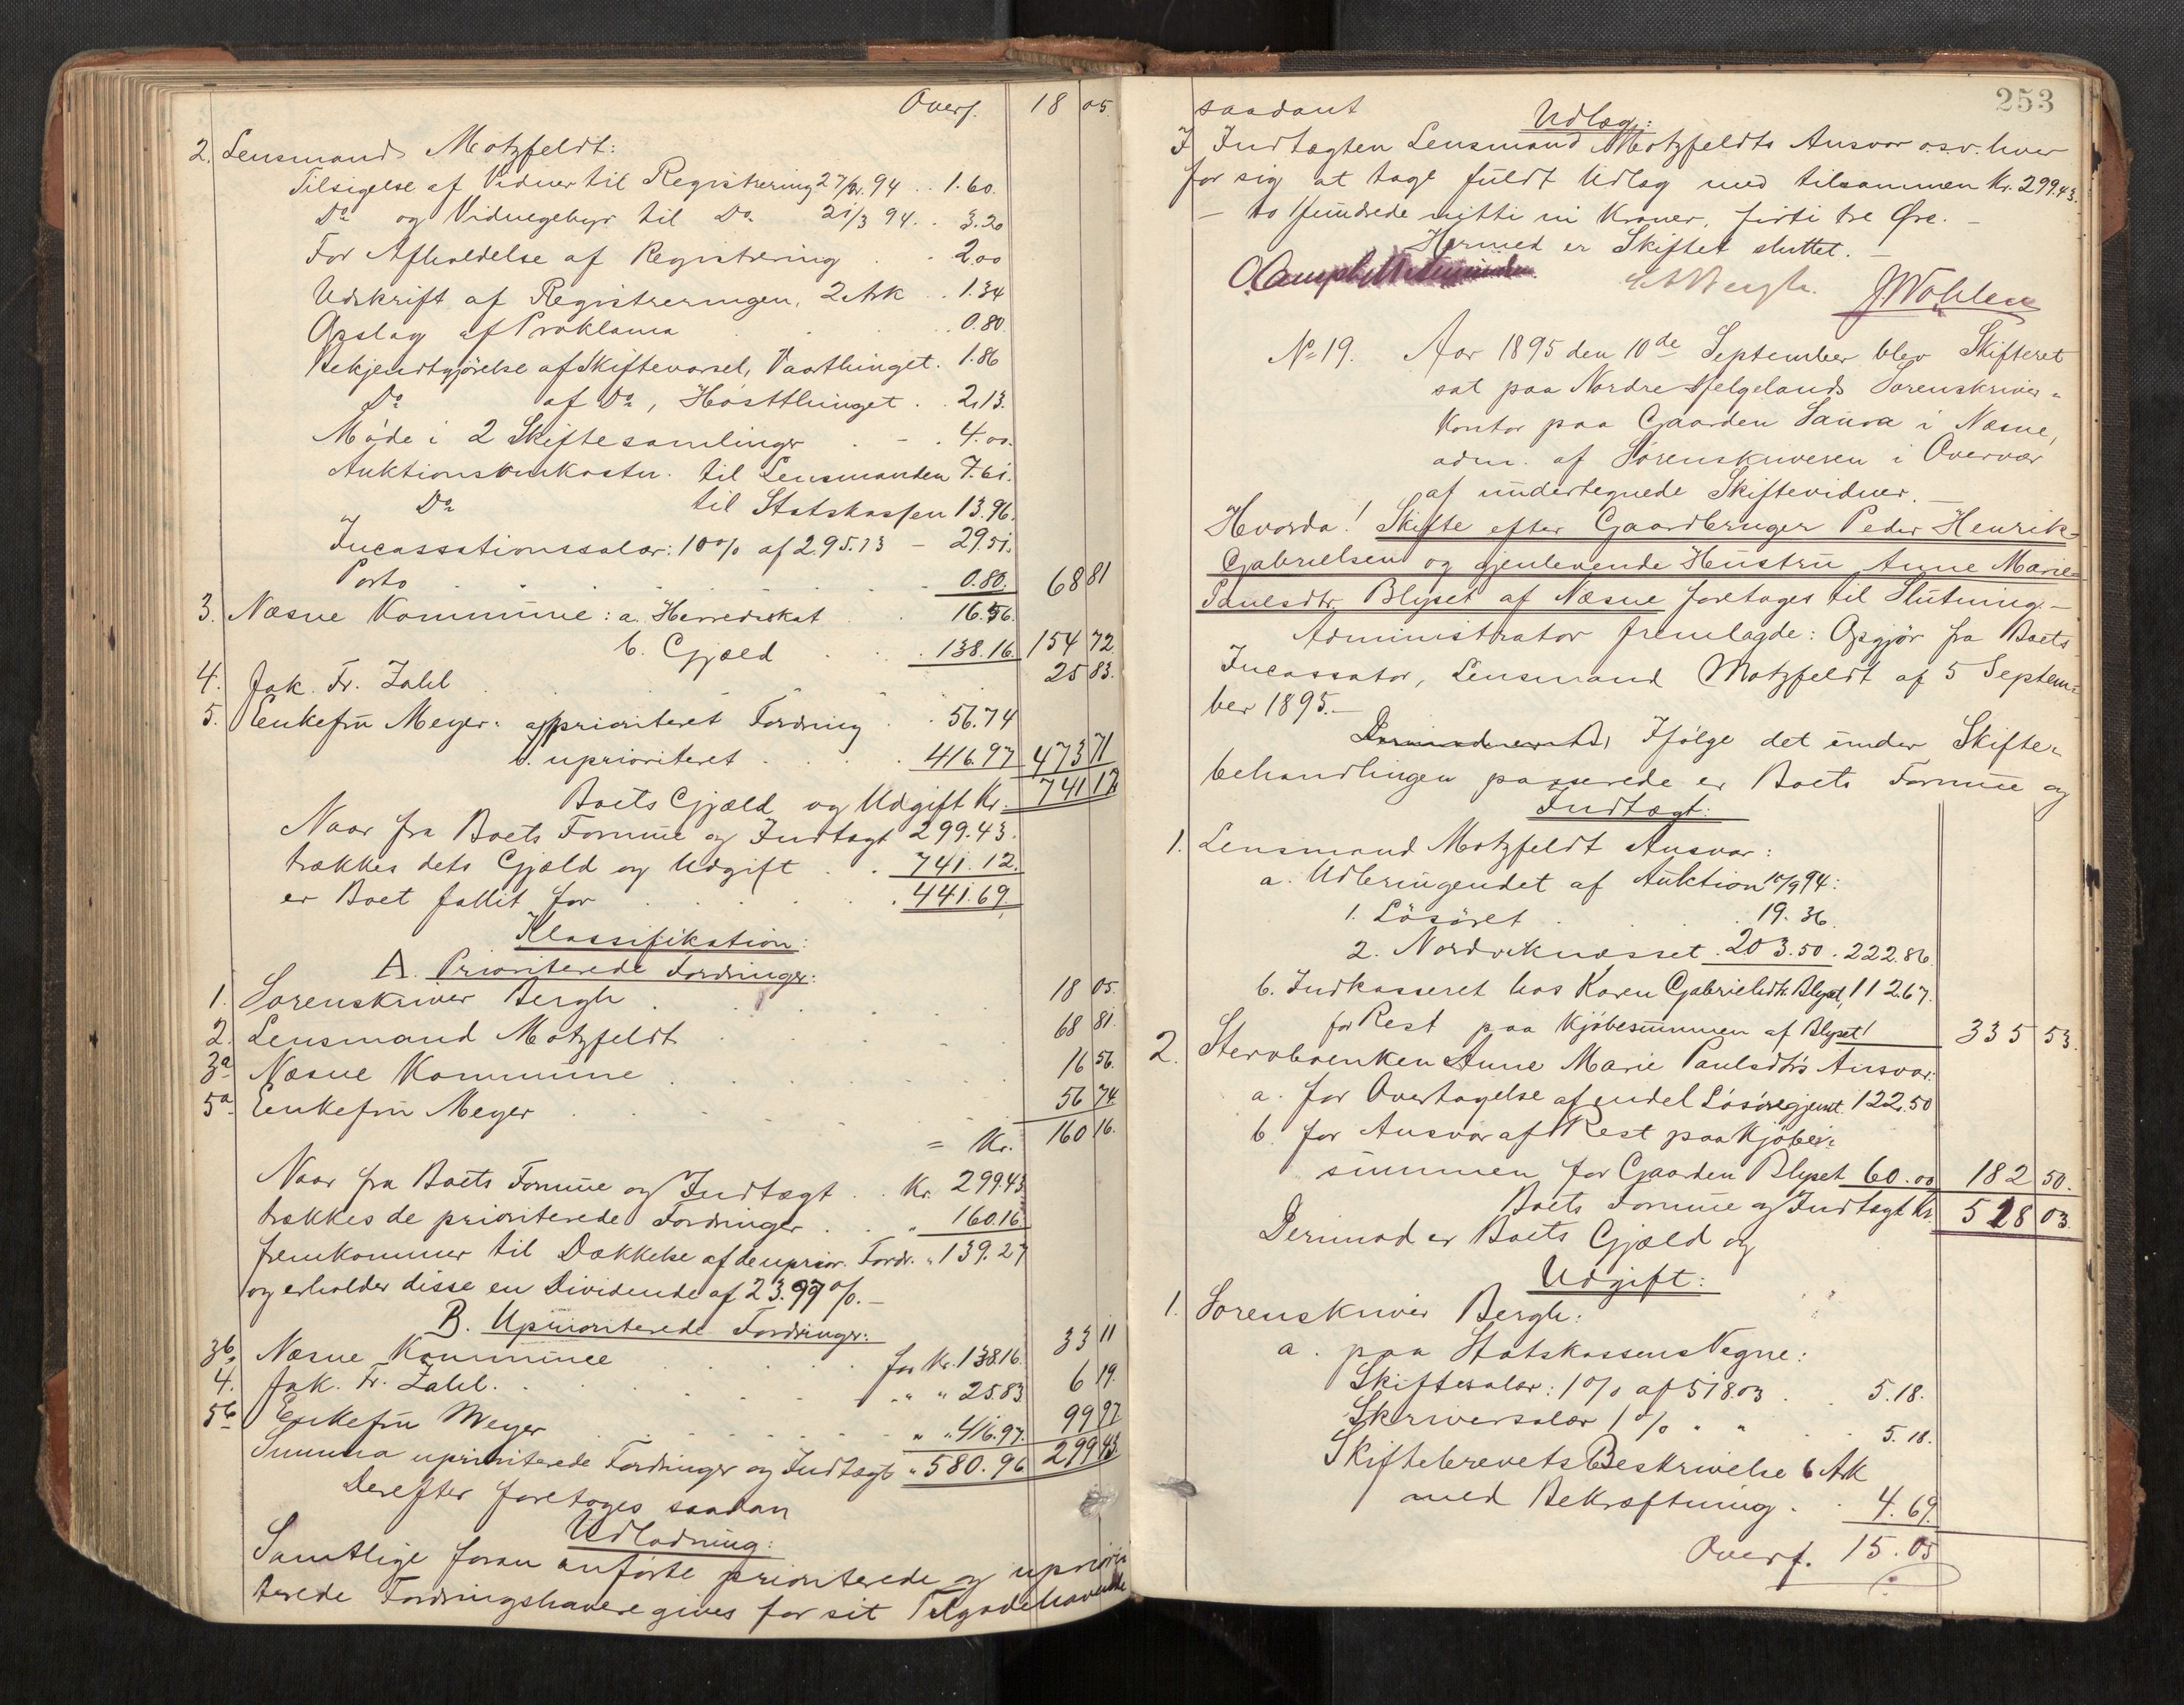 Overf. 18 05.
2. Lensmand Motzfeldt:
Tilsigelse af Vidner til Registrering 27/2. 94 .. 1.60.
Do og Vidnegebyr til Do. 21/3 94. . 3.20
For Afholdelse af Registrering . . 2.00
Udskrift af Registreringen, 2 Ark . . 1.34
Opslag af Proklama . . 0.80.
Bekjendtgjörelse af Skiftevarsel, Vaarthinget. 1.86
Do af Do, Hösttinget . . 2.13.
Möde i 2 Skiftesamlinger . - . 4.00.
Auktionsomkostn. til Lensmanden 7.61.
Do til Statskassen 13.96.
Incassationssalær: 10% af 295.13 - 29.51.
Porto . . . . 0.80. 68 81
3. Næsne Kommune: a. Herredsskat . . 16.56.
b. Gjæld . . . 138.16. 154 72.
4. Jak. Fr. Zahl . . . 25 83.
5. Enkefru Meyer: a. prioriteret Fordring . . 56.74
b. uprioriteret . . . 416.97 473 71
Boets Gjæld og Udgift Kr. 741 12
Naar fra Boets Formue og Indtægt 299.43.
trækkes dets Gjæld og Udgift . . 741.12.
er Boet fallit for . . . 441.69
Klassifikation:
A. Prioriterede Fordringer:
1. Sorenskriver Bergh . . . 18 05.
2. Lensmand Motzfeldt . . . 68 81.
3a Næsne Kommune . . . 16 56.
5a. Enkefru Meyer . . . 56 74.
= Kr. 160 16.
Naar fra Boets Formue og Indtægt . . Kr. 299.43
trækkes de prioriterede Fordringer . . " 160.16
fremkommer til Dækkelse af de uprior. Fordr. " 139.27
og erholder disse en Dividende af 23.99%.-
B. Uprioriterede Fordringer:
3b. Næsne Kommune . . . for Kr. 138.16. 33 11
4. Jak. Fr. Zahl. . . . " " 25.83 6 19.
5b Enkefru Meyer . . . " " 416.97. 99 97
Summa uprioriterede Fordringer og Indtægt " 580.96 299 43.
Derefter foretoges saadan
Udlodning:
Samtlige foran anförte prioriterede og uprior-
terede Fordringshavere gives for sit Tilgodehavende
253
saadant
Udlæg:
I Indtægten Lensmand Motzfeldts Ansvar o.s.v. hver
for sig at tage fuldt Udlæg med tilsammen Kr. 299.43.
- to Hundrede nitti ni Kroner, firti tre Øre. -
Hermed er Skiftet sluttet. -
No 19. Aar 1895 den 10de September blev Skifteret
sat paa Nordre Helgelands Sorenskriver-
kontor paa Gaarden Sanva i Næsne,
adm. af Sörenskriveren i Overvær
af undertegnede Skiftevidner. -
Hvorda! Skifte efter Gaardbruger Peder Henrik
Gabrielsen og gjenlevende Hustru Anne Marie
Paulsdtr. Blyset af Næsne foretages til Slutning. -
Administrator fremlagde: Opgjör fra Boets
Incassator, Lensmand Motzfeldt af 5 Septem-
ber 1895. -
Ifölge det under Skifte-
behandlingen passerede er Boets Formue og
Indtægt:
1. Lensmand Motzfeldt Ansvar:
a. Udbringendet af Auktion 10/9 94:
1. Lösöret . . . 19.36.
2. Nordviknæsset . 203.50. 222.86.
b. Indkasseret hos Karen Gabrielsdtr. Blyset, 112.67.
for Rest paa Kjöbesummen af Blyset! 335 53.
2. Stervboenken Anne Marie Paulsdtr's Ansvar:
a. for Overtagelse af endel Lösöregjenst. 122.50
b. for Ansvar af Rest paa Kjöbe-
summen for Gaarden Blyset 60.00 182 50.
Boets Formue og Indtægt Kr. 518 03.
Derimod er Boets Gjæld og
Udgift:
1. Sorenskriver Bergh:
a. paa Statskassens Vegne:
Skiftesalær: 1% af 518.03 . . 5.18.
Skriversalær 1% " " . . 5.18.
Skiftebrevets Beskrivelse 6 Ark
med Bekræftning . . 4.69.
Overf. 15.05